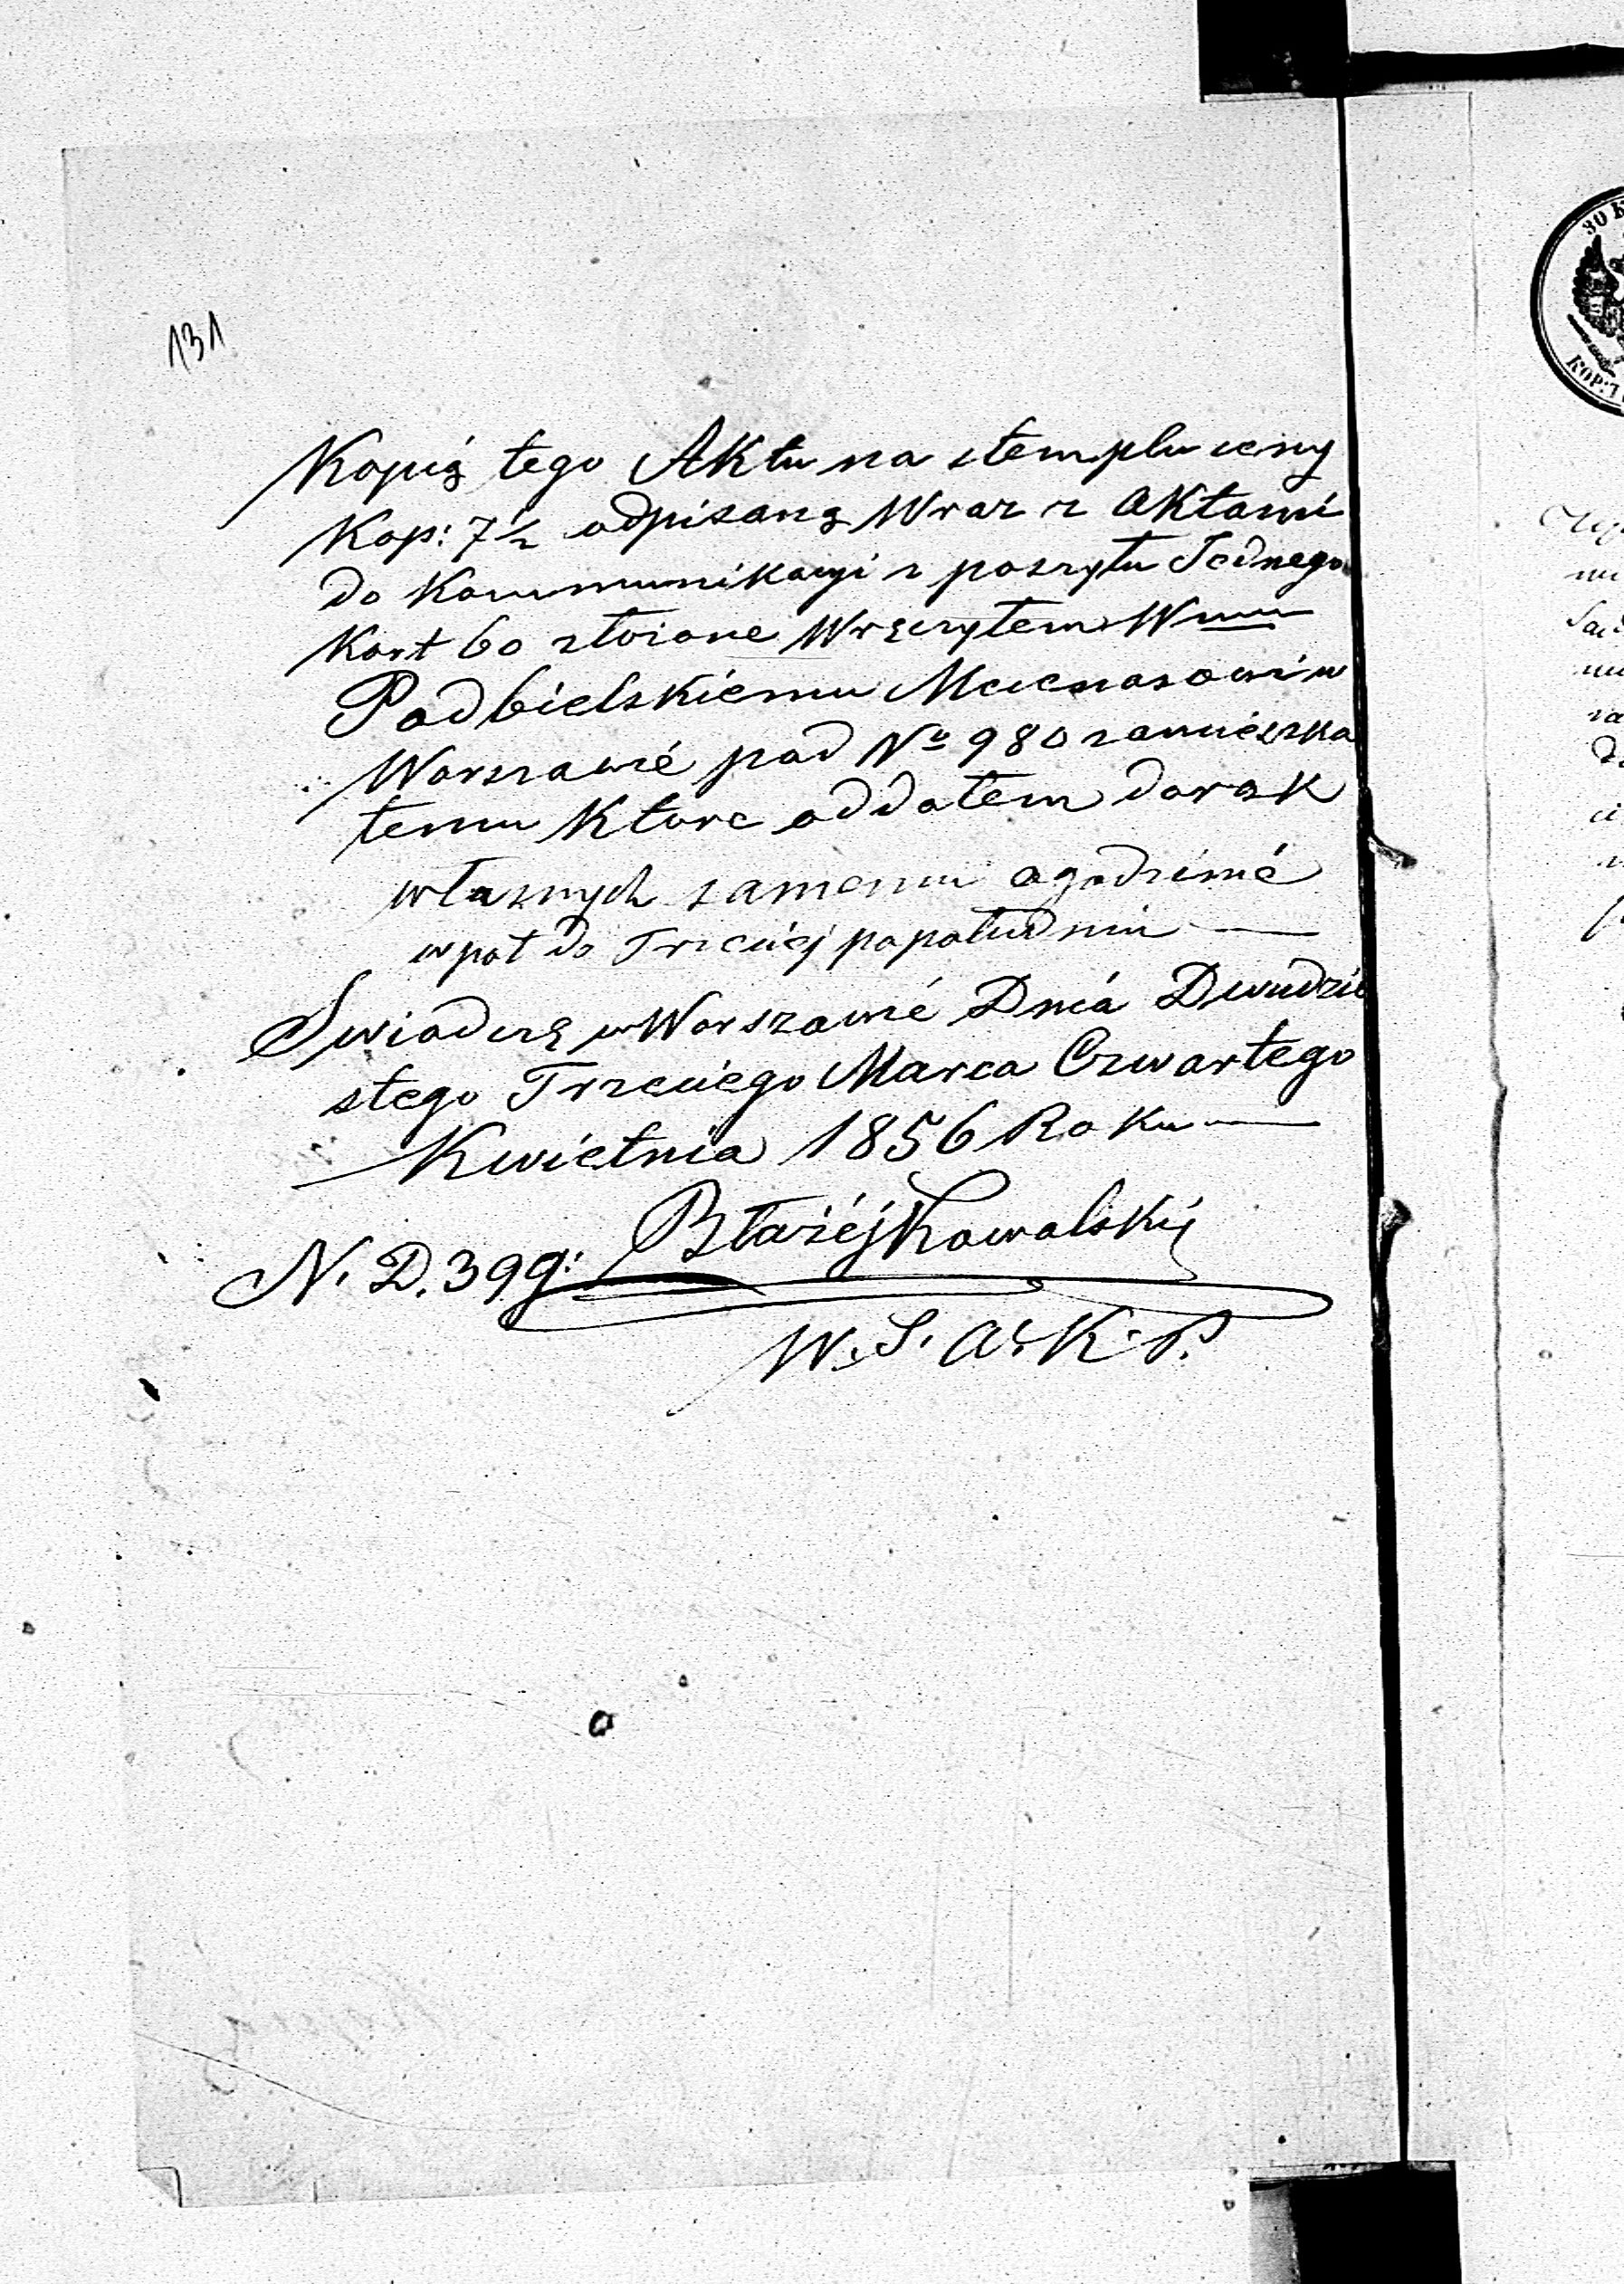 131
Kopią tego Aktu na stemplu ceny
Kop: 7½ odpisaną Wraz z Aktami
do Kommunikacyi z poszytu Jednego
Kart 60 złożone Wręczyłem Wmu
Podbielskiemu Mecenasowi w
Warszawié pod No 980 zamieszka
temu Które oddałem do rąk
własnych samemu ogodzinié
wpół do Trzeciéj popołudniu —
Swiadczę w Warszawié Dniá Dwudzie
stego Trzeciego Marca Czwartego
Kwietnia 1856 Roku —
Błażéj Kowalskij
N. D. 399:
W. S. A. K. P.
30 K
KOP: 7